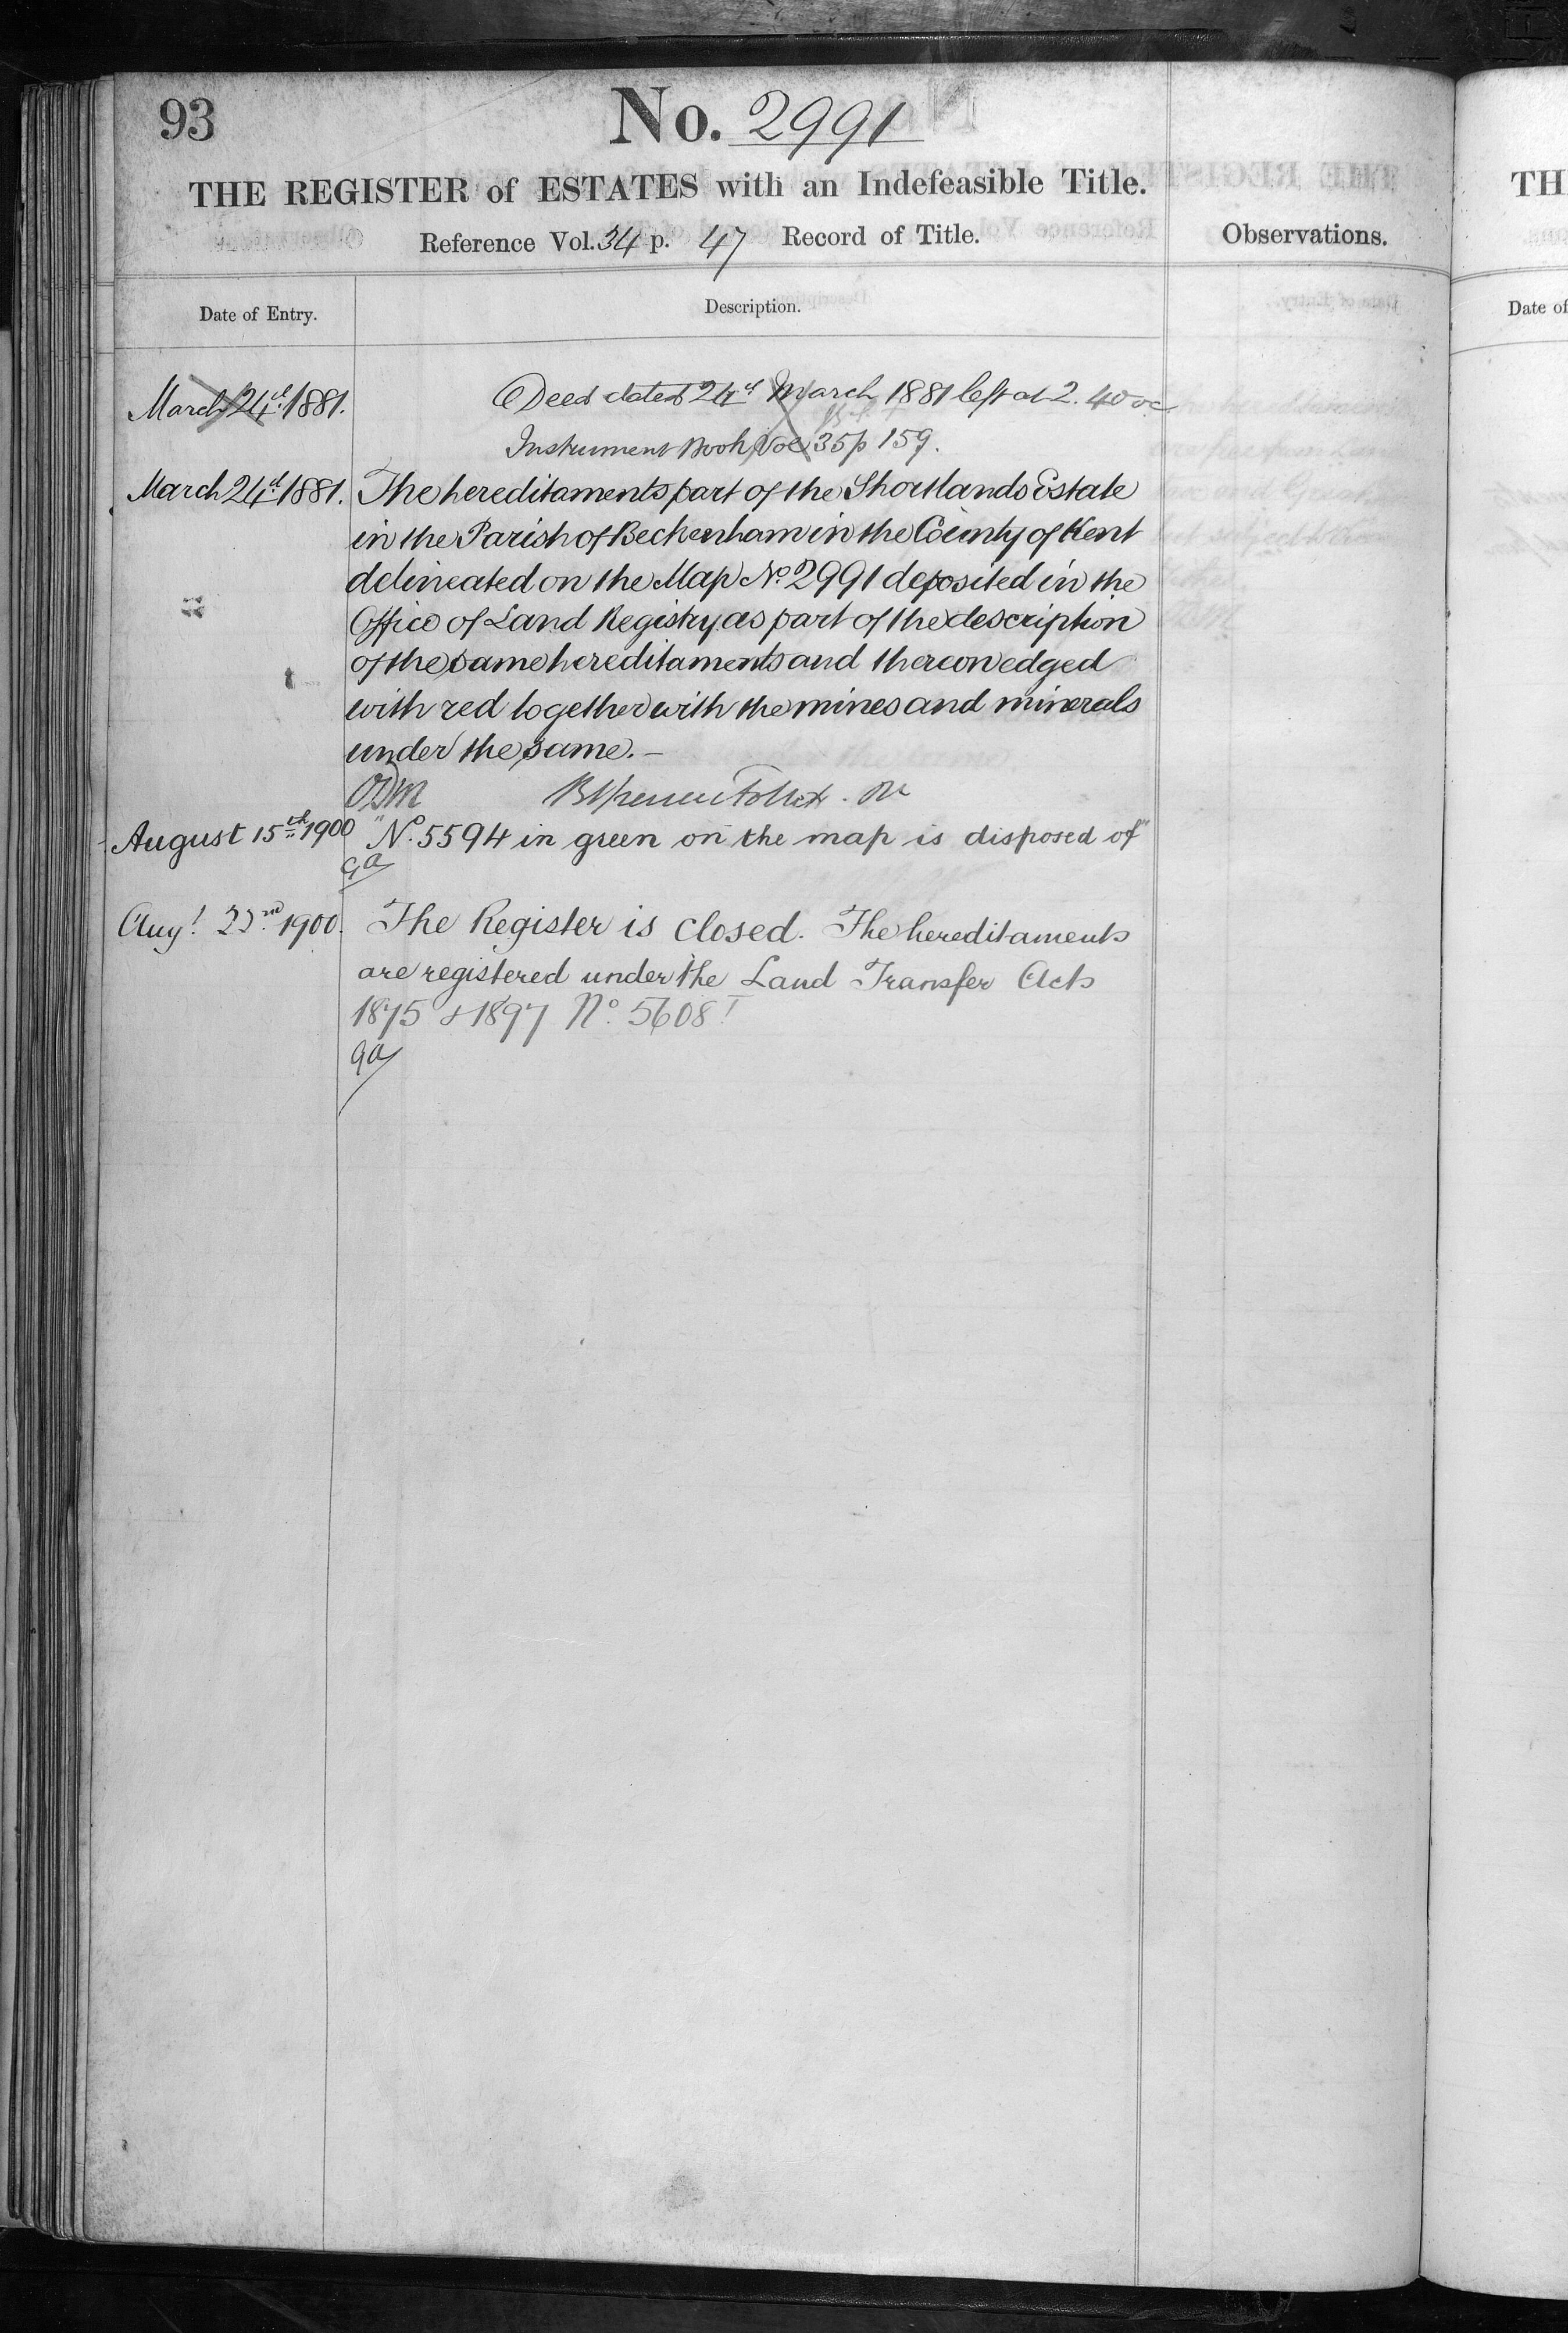 93
No. 2991
THE REGISTER of ESTATES with an Indefeasible Title.
Reference Vol. 34 p. 47 Record of Title.
Observations.
Date of Entry.
Description.
March 24th 1881.
Deed dated 24th March 1881 left at 2.40 oc
Instrument Book Vol 35 p 159.
March 24th 1881.
The hereditaments part of the Shortlands Estate
in the Parish of Beckenham in the County of Kent
delineated on the Map No. 2991 deposited in the
Office of Land Registry as part of the description
of the same hereditaments and thereon edged
with red together with the mines and minerals
under the same. —
Follett
August 15th 1900
"No. 5594 in green on the map is disposed of"
GA
Augt. 22nd 1900.
The Register is closed. The hereditaments
are registered under the Land Transfer Acts
1875 & 1897 No. 5608
GA
TH
Date of